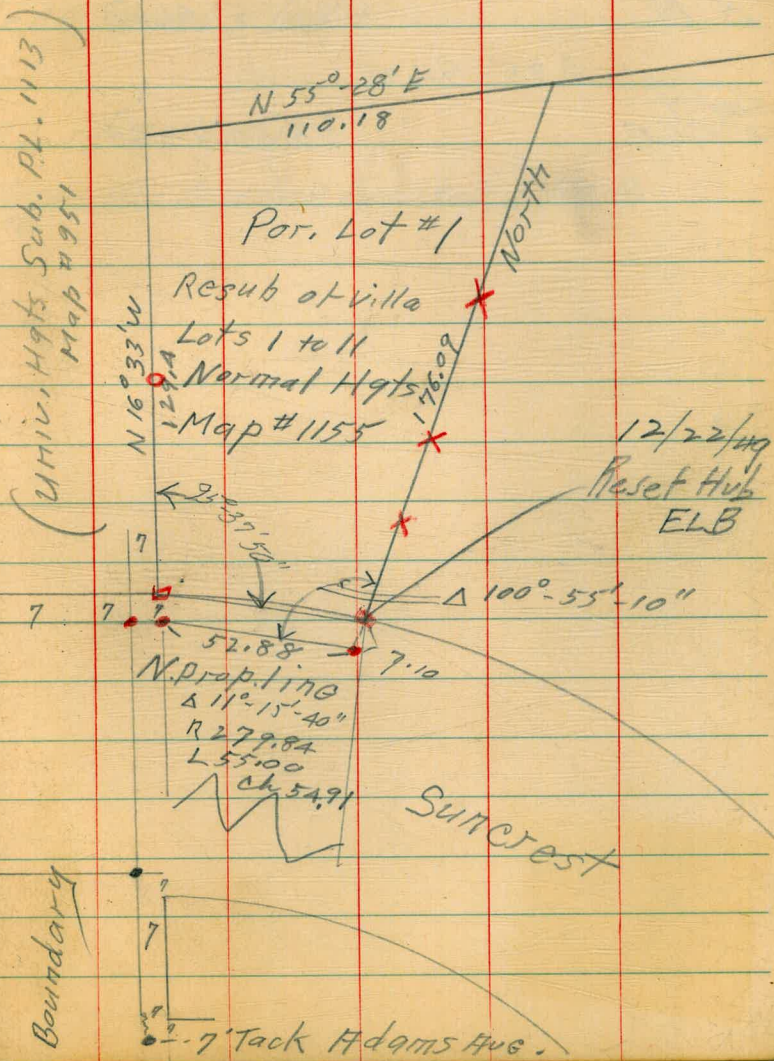 (Univ. Hgts Sub. Pt. 1113
Map #951)
N 55°-28' E
110.18
North
176.09
Por. Lot #1
Resub of Villa
Lots 1 to 11
Normal Hgts
Map #1155
N 16° 33' W
129.4
12/22/49
Reset Hub
ELB
7
Δ 100°-55'-10"
7
7
7
52.88
7.10
N. prop. line
Δ 11°-15'-40"
R 279.84
L 55.00
ch 54.91
Suncrest
Boundary
7
7
7
7
7' Tack Adams Ave.